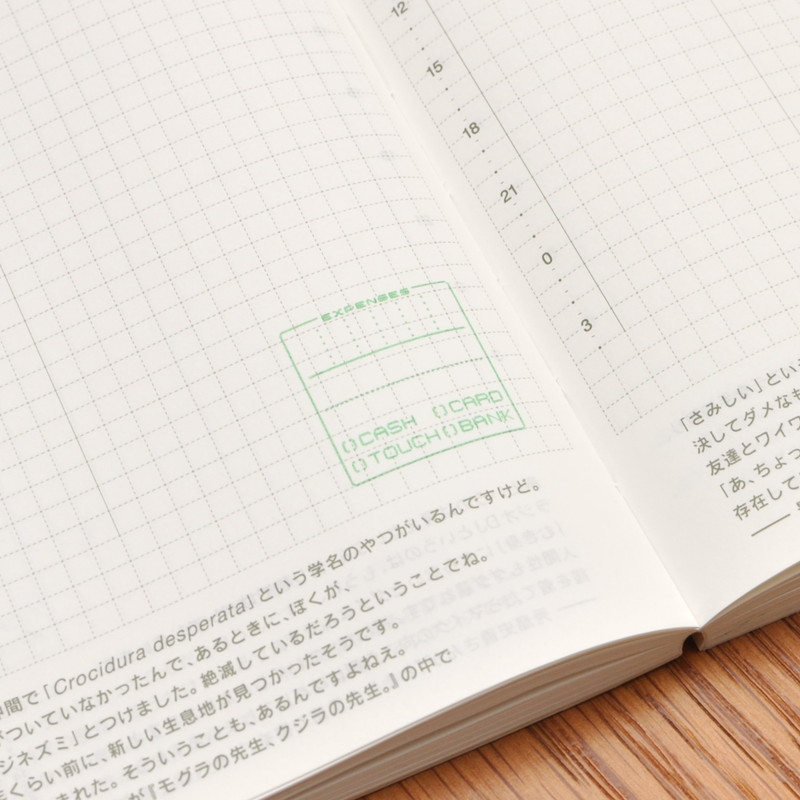 ()CASH ()CARD
()TOUCH()BANK
「Crocidura desperata」という学名のやつがいるんですけど。
がついていなかったんで、あるときに、ぼくが、
ジネズミ」とつけました。絶滅しているだろうということでね。
くらい前に、新しい生息地が見つかったそうです。
まれた。そういうことも、あるんですよねえ。
が『モグラの先生、クジラの先生。』の中で
12
15
18
21
0
3
「さみしい」とい
決してダメなも
友達とワイワ
「あ、ちょっ
存在して